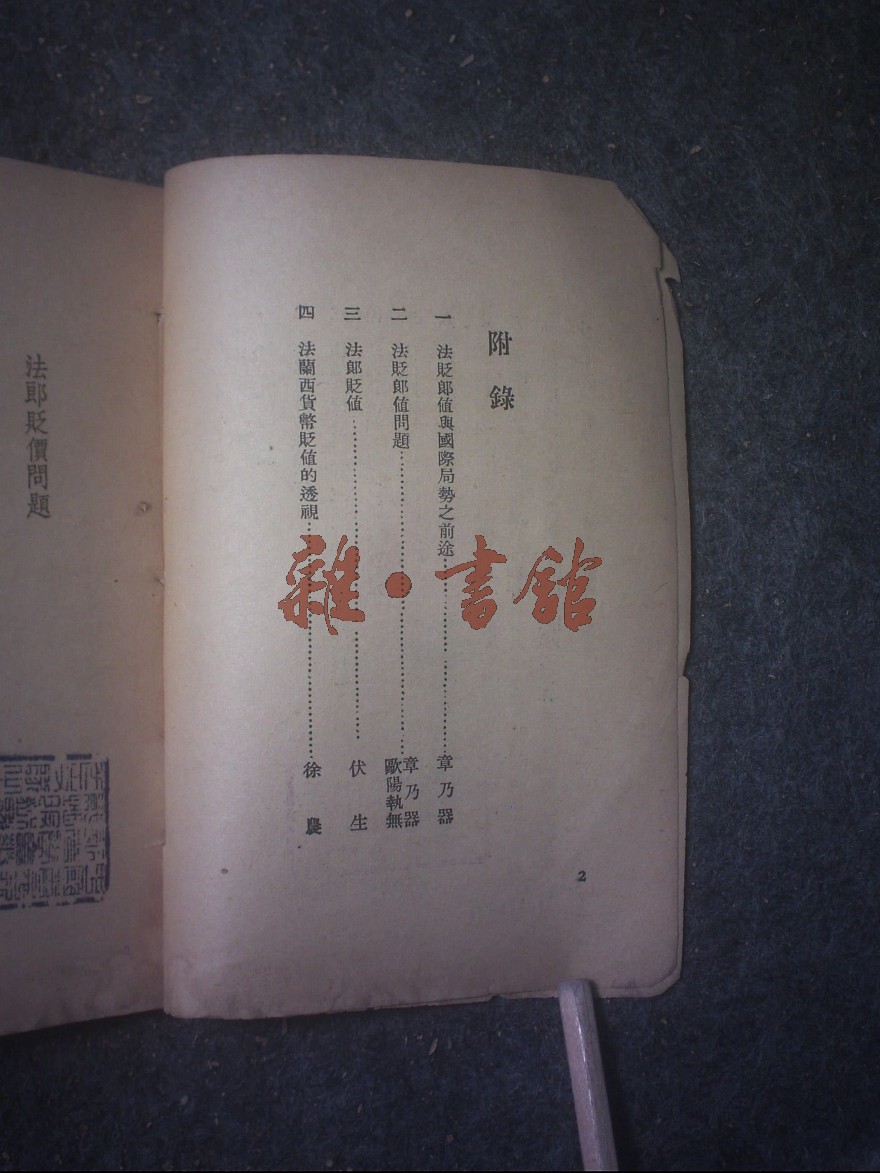 附錄
一 法貶郎值與國際局勢之前途……章乃器
二 法貶郎值問題……章乃器 歐陽執無
三 法郎貶值……伏生
四 法蘭西貨幣貶值的透視……徐農
2
法郎貶價問題
雜·書館